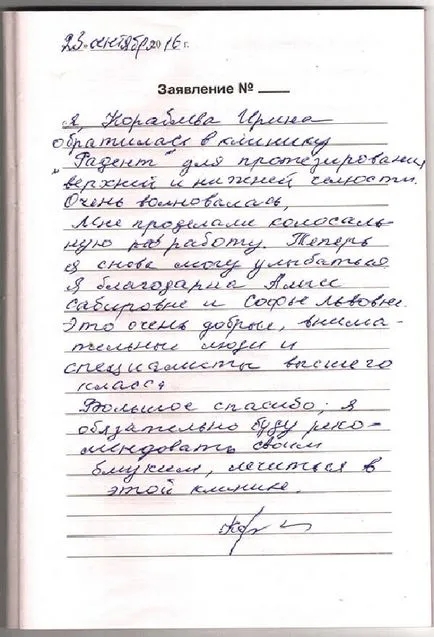 23 сентябр 2016 г.
Заявление № ____
Я, Кораблева Ирина
обратилась в клинику
"Радент" для протезирования
верхней и нижней челюсти.
Очень волновалась,
Мне проделали колосаль-
ную раб работу. Теперь
я снова могу улыбаться
Я благодарна Алисе
Сабировне и Софье Львовне.
Это очень добрые, внима-
тельные люди и
специалисты высшего
класса
Большое спасибо, я
обязательно буду реко-
мендовать своим
близким, лечиться в
этой клинике.